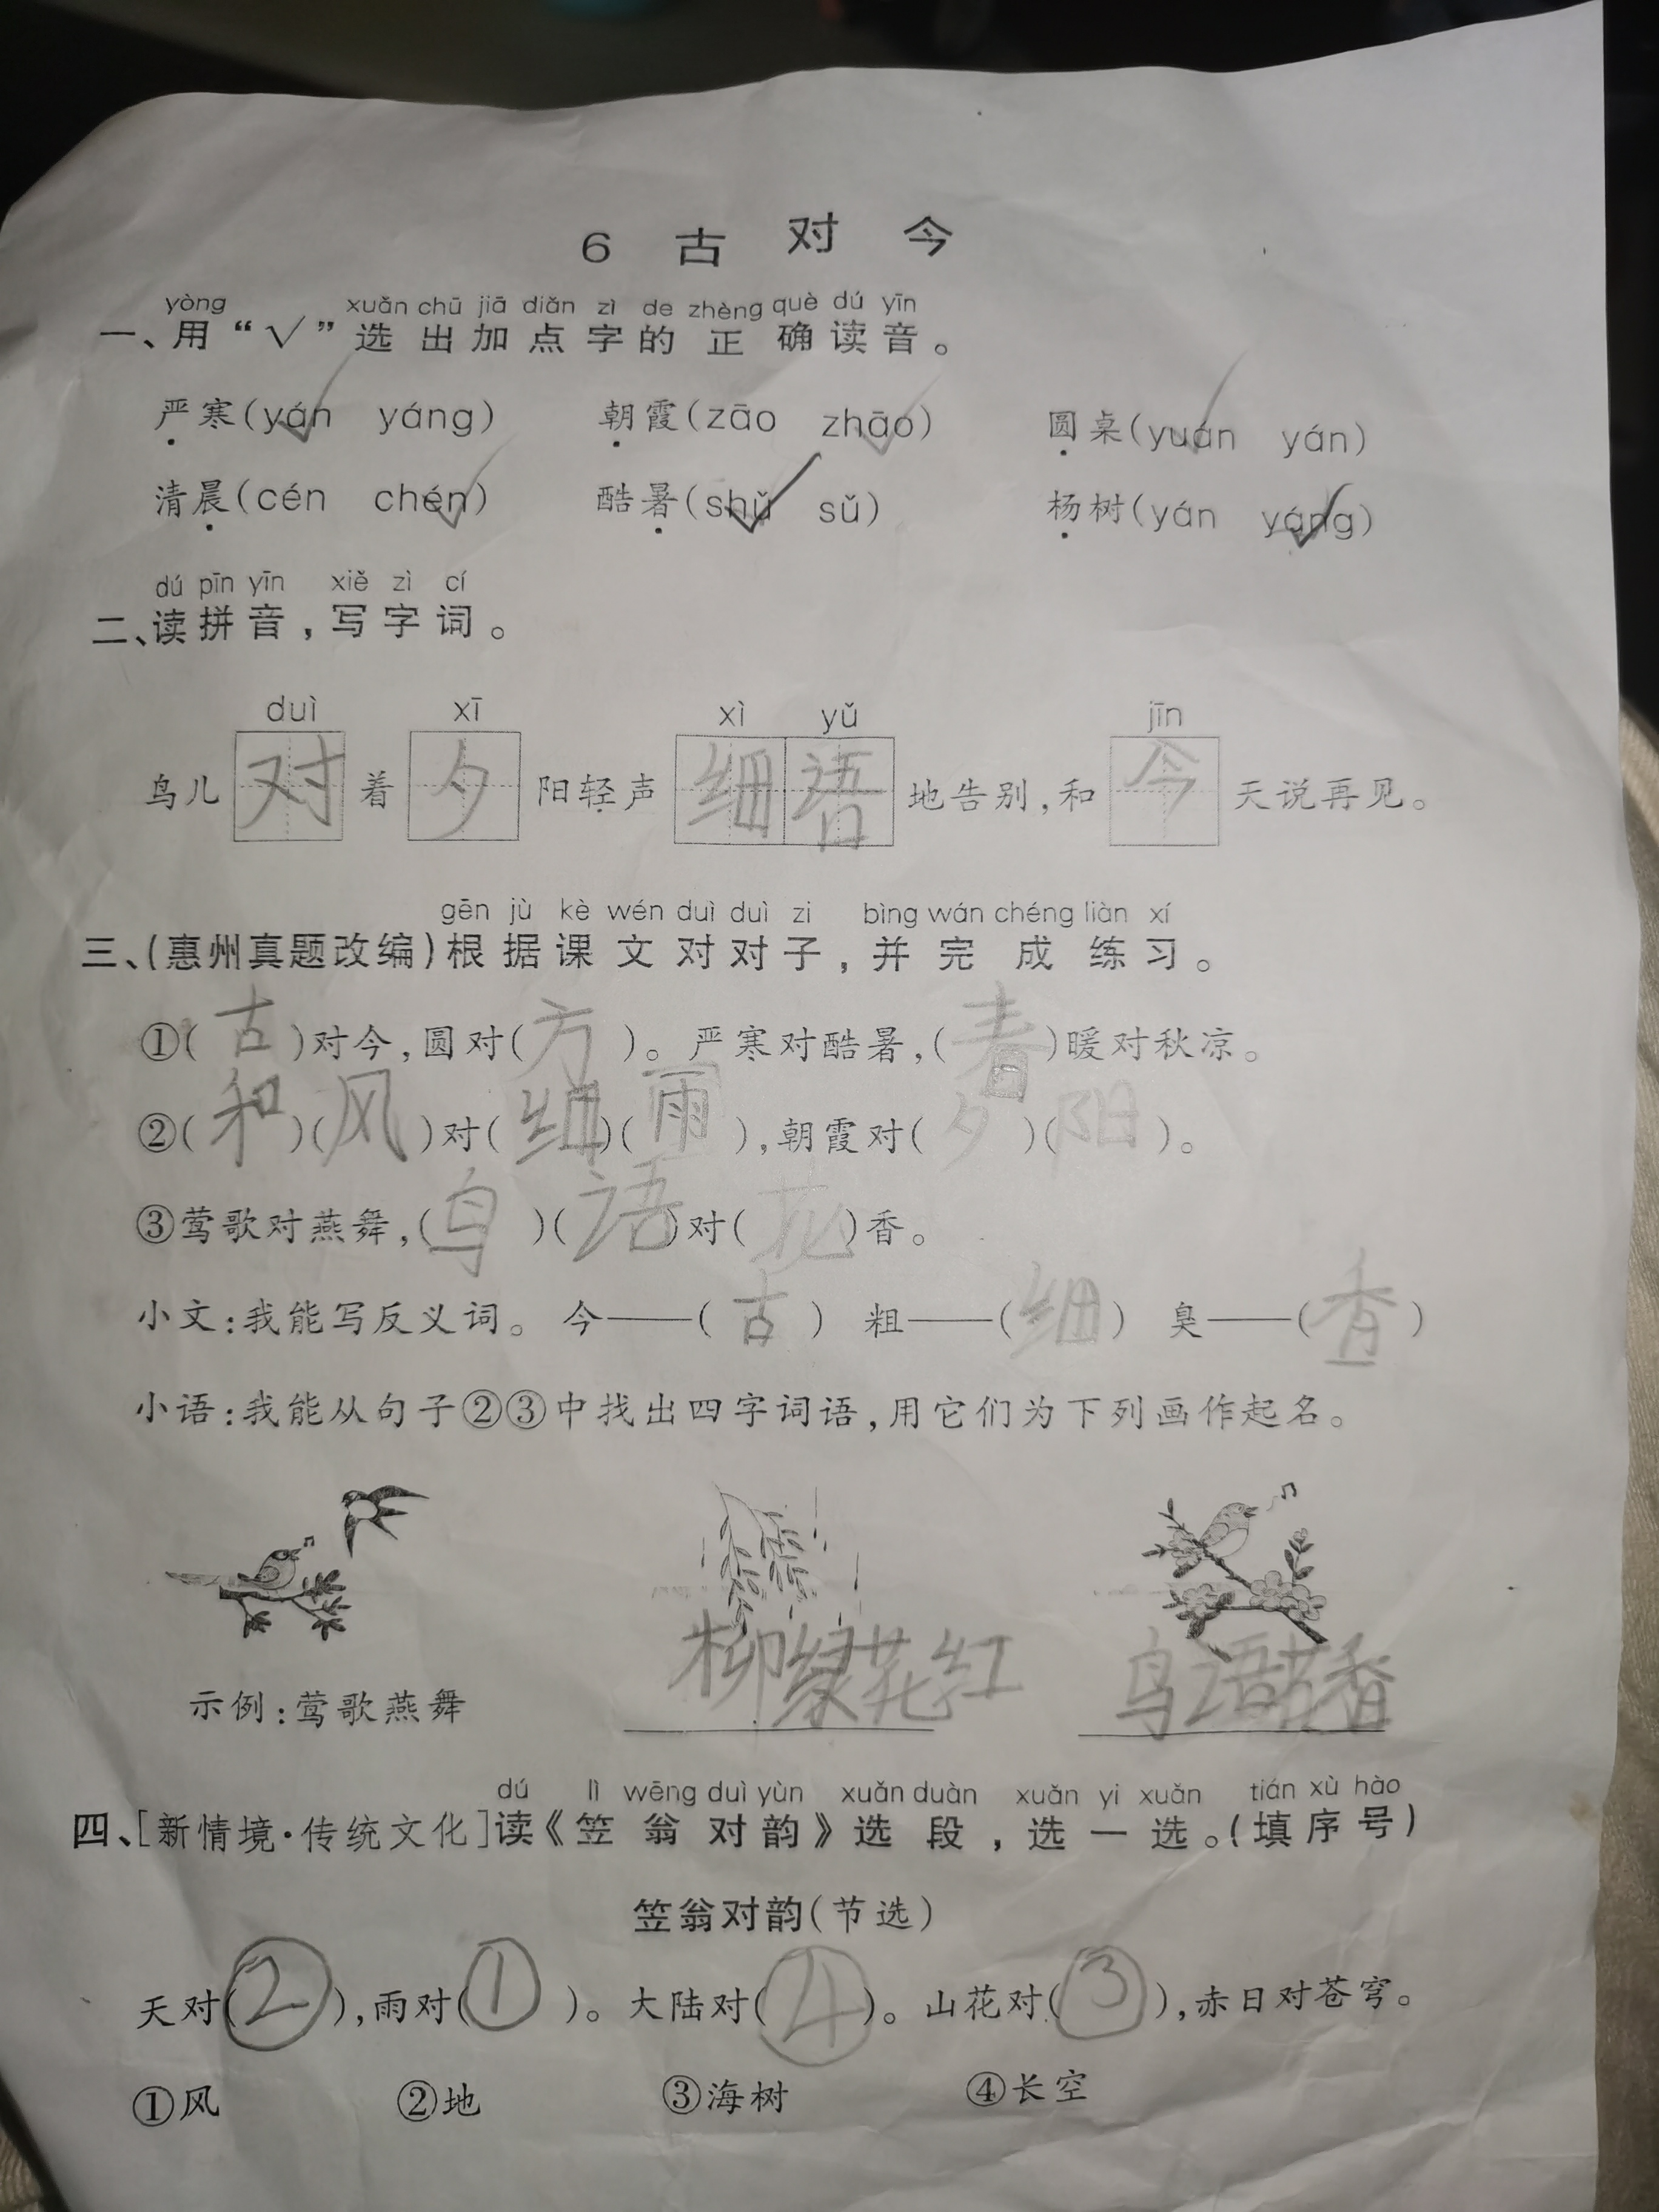 6 古 对 今
yòng xuǎn chū jiā diǎn zì de zhèng què dú yīn
一、用“√”选出加点字的正确读音。
严寒(yán✓ yáng) 朝霞(zāo zhāo✓) 圆桌(yuán✓ yán)
清晨(cén chén✓) 酷暑(shǔ✓ sǔ) 杨树(yán yáng✓)
dú pīn yīn xiě zì cí
二、读拼音,写字词。
duì xī xì yǔ jīn
鸟儿对着夕阳轻声细语地告别,和今天说再见。
gēn jù kè wén duì duì zi bìng wán chéng liàn xí
三、(惠州真题改编)根据课文对对子,并完成练习。
①(古)对今,圆对(方)。严寒对酷暑,(春)暖对秋凉。
②(和)(风)对(细)(雨),朝霞对(夕)(阳)。
③莺歌对燕舞,(鸟)(语)对(花)香。
小文:我能写反义词。 今——(古) 粗——(细) 臭——(香)
小语:我能从句子②③中找出四字词语,用它们为下列画作起名。
示例:莺歌燕舞 柳绿花红 鸟语花香
dú lì wēng duì yùn xuǎn duàn xuǎn yi xuǎn tián xù hào
四、[新情境·传统文化]读《笠翁对韵》选段,选一选。(填序号)
笠翁对韵(节选)
天对(②),雨对(①)。大陆对(④)。山花对(③),赤日对苍穹。
①风 ②地 ③海树 ④长空